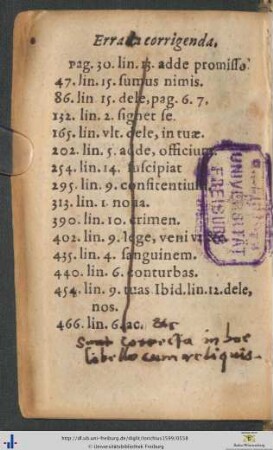 Errata corrigenda.
pag. 30. lin. 13. adde promisso.
47. lin. 15. sumus nimis.
86. lin. 15. dele, pag. 6. 7.
132. lin. 2. signet se.
165. lin. vlt. dele, in tuæ.
202. lin. 5. adde, officium
254. lin. 14. suscipiat
295. lin. 9. consitentium
313. lin. 1. nona.
390. lin. 10. crimen.
402. lin. 9. lege, veni vt
435. lin. 4. sanguinem.
440. lin. 6. conturbas.
454. lin. 9. tuas Ibid. lin. 12. dele,
nos.
466. lin. 6. ac. Etc
Sunt correcta in hoc
libello cum reliquis.
UNIVERSITÄT
FREIBURG
http://dl.ub.uni-freiburg.de/diglit/
© Universitätsbibliothek Freiburg